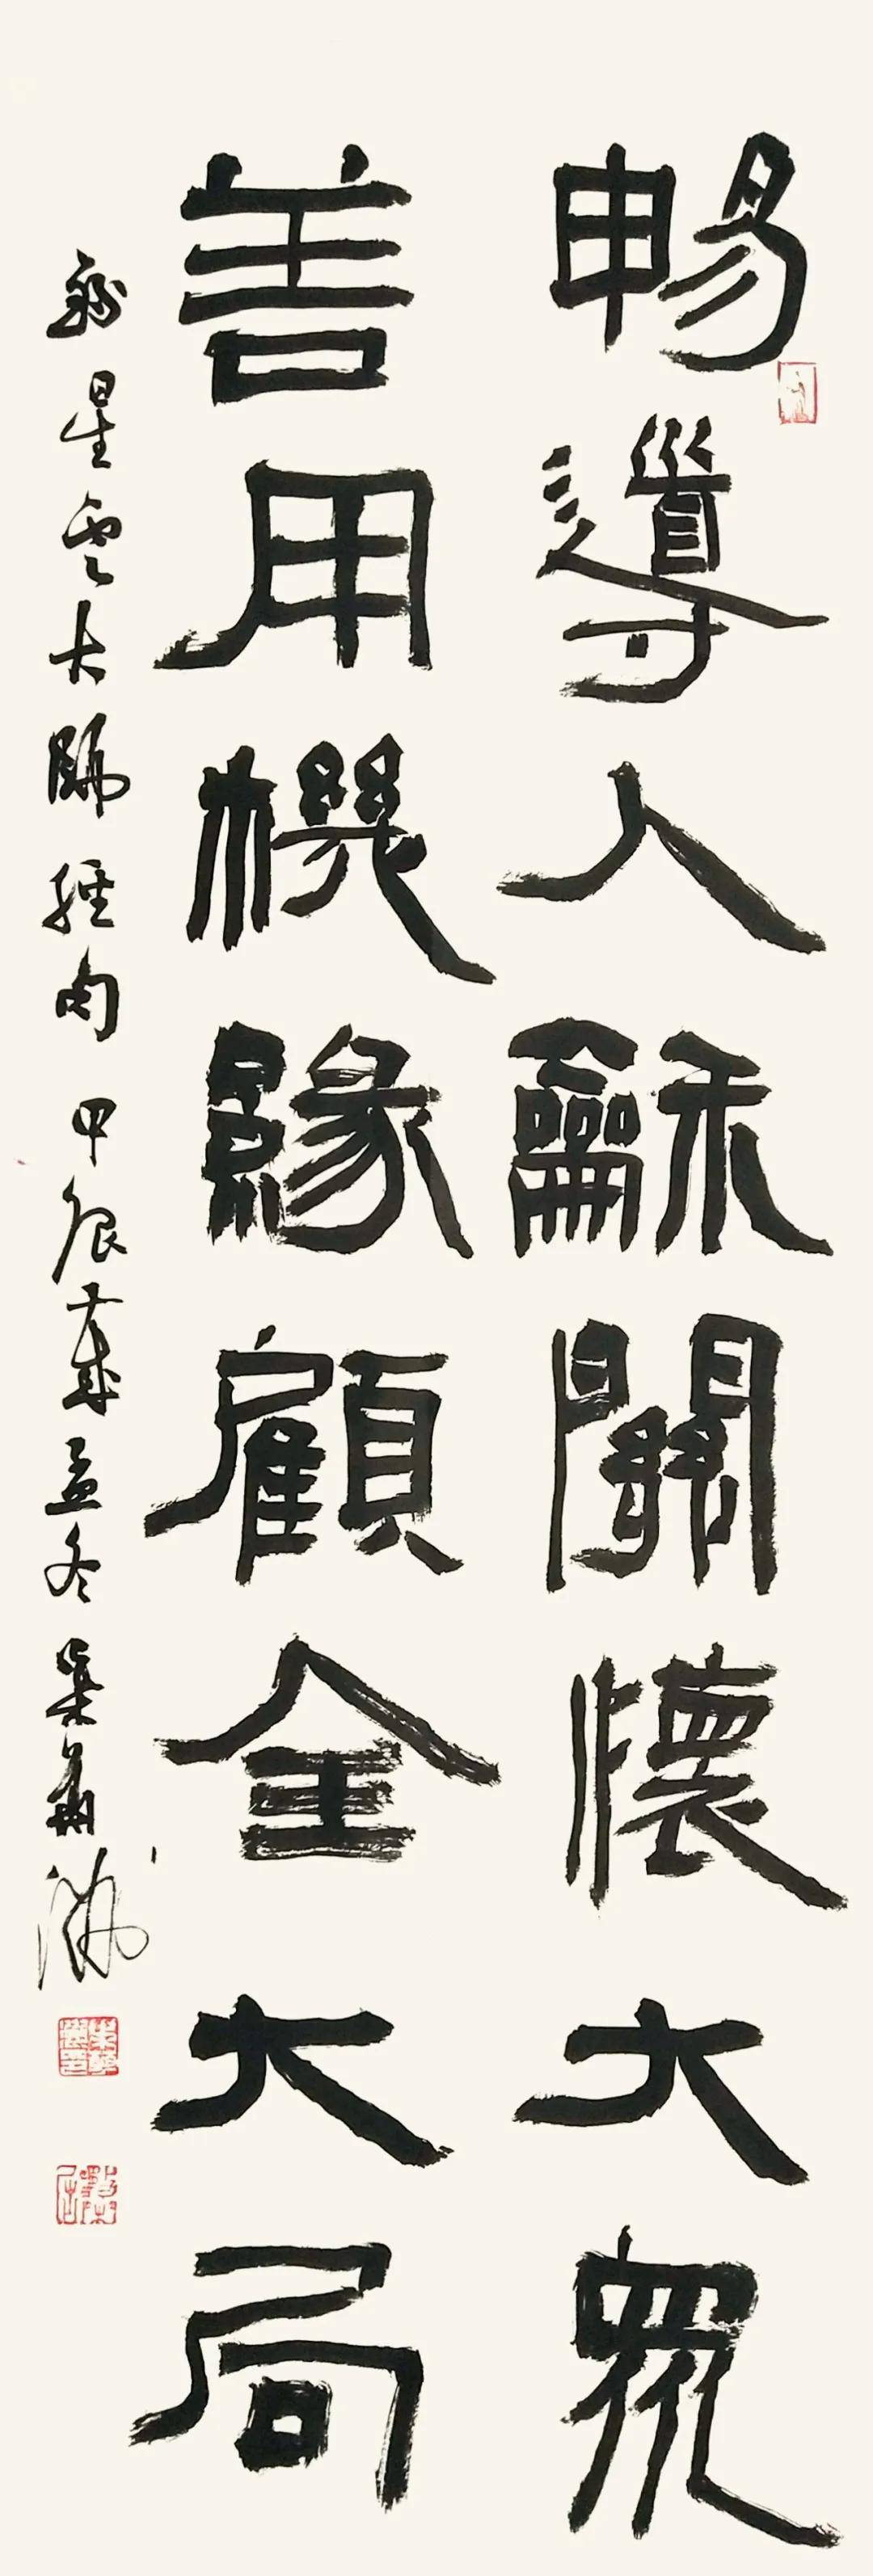 暢導人龢關懷大眾
善用機緣顧全大局
錄星雲大師經句 甲辰歲孟冬 朱壽